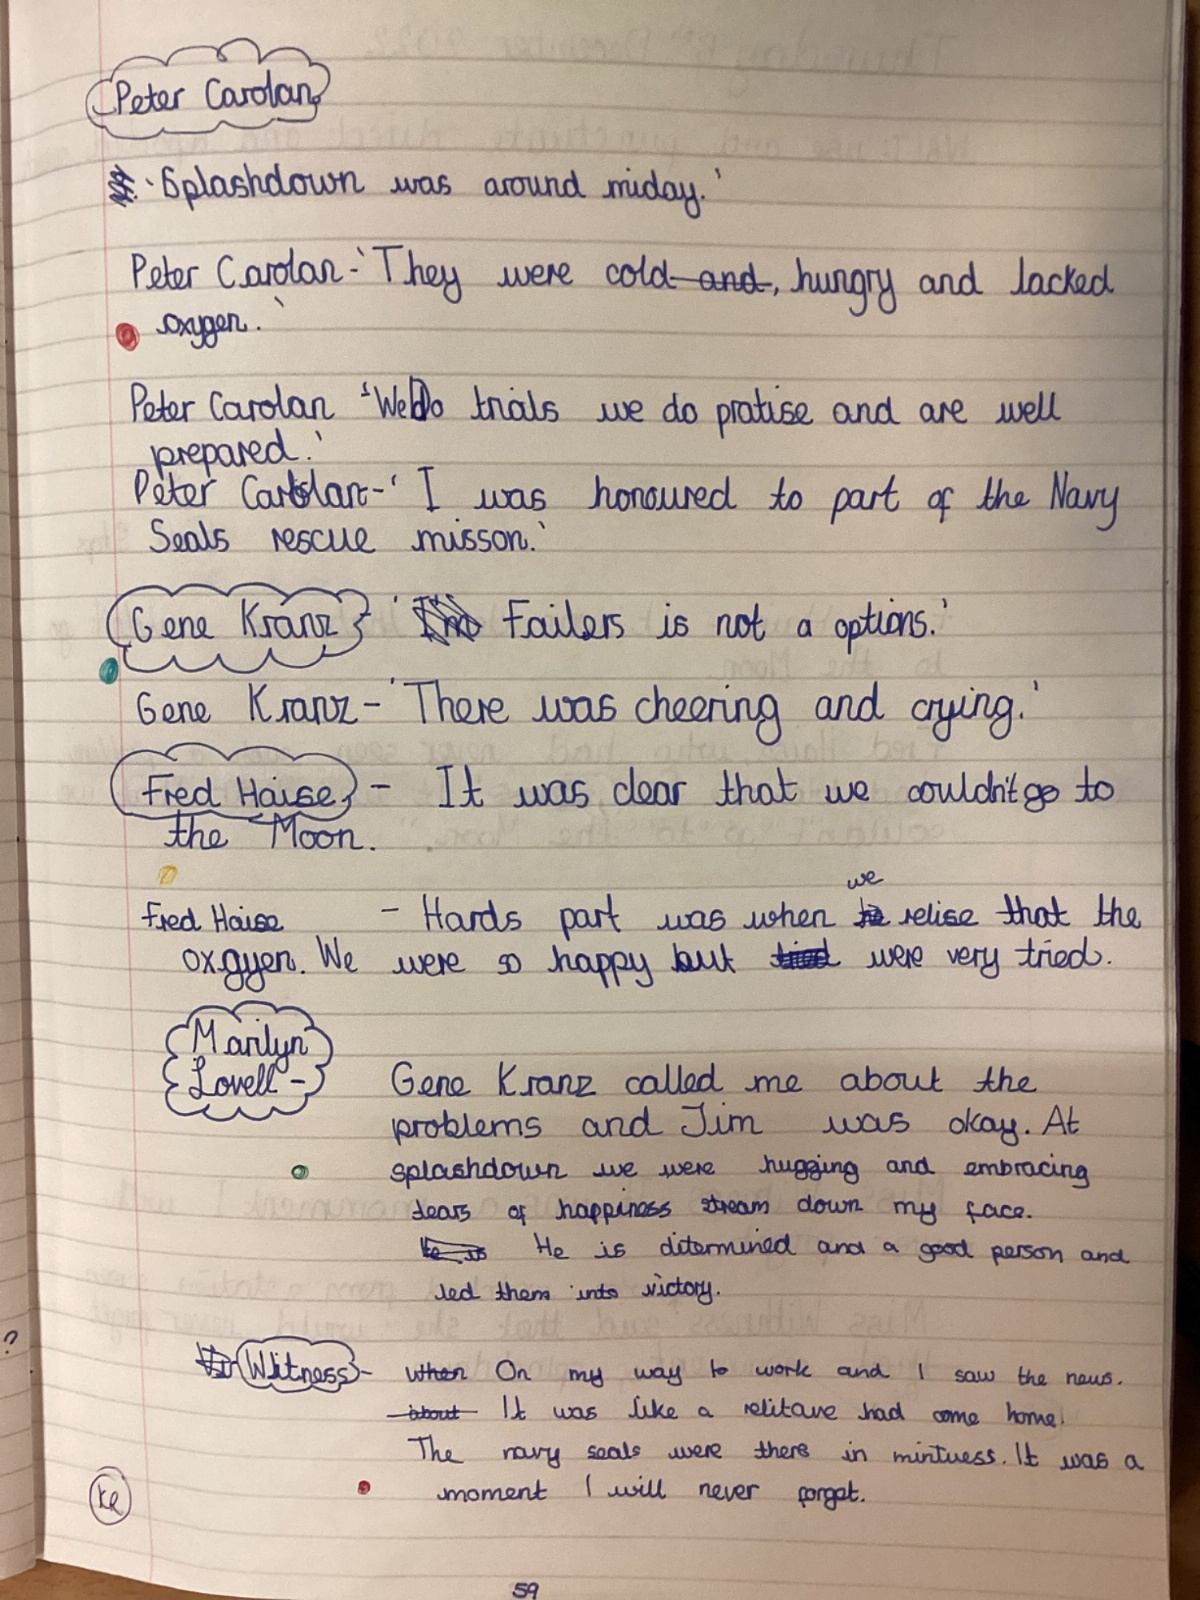 Peter Carolan
'Splashdown was around miday.'
Peter Carolan - 'They were cold and, hungry and lacked
oxygen.'
Peter Carolan 'We Do trials we do pratise and are well
prepared.'
Peter Carolan - 'I was honoured to part of the Navy
Seals rescue misson.'
Gene Kranz - ' I'm Failers is not a options.'
Gene Kranz - 'There was cheering and crying.'
Fred Haise - It was clear that we couldn't go to
the Moon.
we
Fred Haise - Hards part was when he relise that the
oxgyen. We were so happy but tried were very tried.
Marilyn
Lovell -
Gene Kranz called me about the
problems and Jim was okay. At
splashdown we were hugging and embracing
tears of happiness stream down my face.
He is He is ditermined and a good person and
led them into victory.
Witness - when On my way to work and I saw the news.
about It was like a relitave had come home.
The navy seals were there in mintuess. It was a
moment I will never forget.
KR
59
?